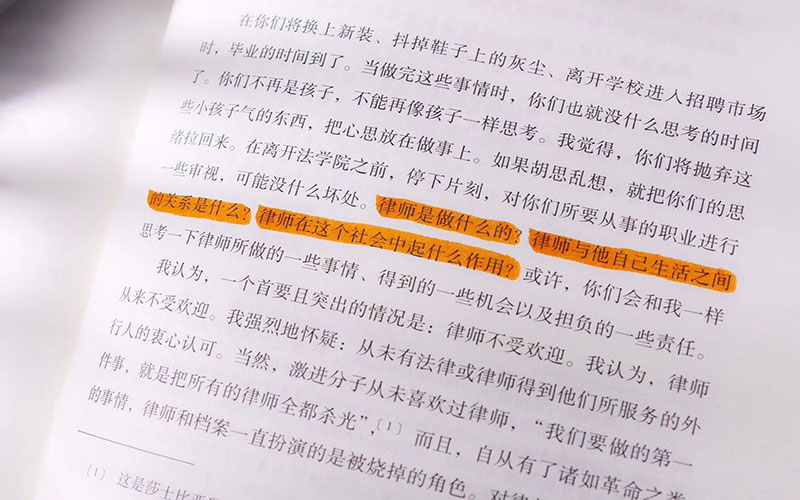 在你们将换上新装、抖掉鞋子上的灰尘、离开学校进入招聘市场
时，毕业的时间到了。当做完这些事情时，你们也就没什么思考的时间
了。你们不再是孩子，不能再像孩子一样思考。我觉得，你们将抛弃这
些小孩子气的东西，把心思放在做事上。如果胡思乱想，就把你们的思
绪拉回来。在离开法学院之前，停下片刻，对你们所要从事的职业进行
一些审视，可能没什么坏处。律师是做什么的？律师与他自己生活之间
的关系是什么？律师在这个社会中起什么作用？或许，你们会和我一样
思考一下律师所做的一些事情、得到的一些机会以及担负的一些责任。
我认为，一个首要且突出的情况是：律师不受欢迎。我认为，律师
从来不受欢迎。我强烈地怀疑：从未有法律或律师得到他们所服务的外
行人的衷心认可。当然，激进分子从未喜欢过律师，“我们要做的第一
件事，就是把所有的律师全都杀光”，[1] 而且，自从有了诸如革命之类
的事情，律师和档案一直扮演的是被烧掉的角色。对律
[1] 这是莎士比亚